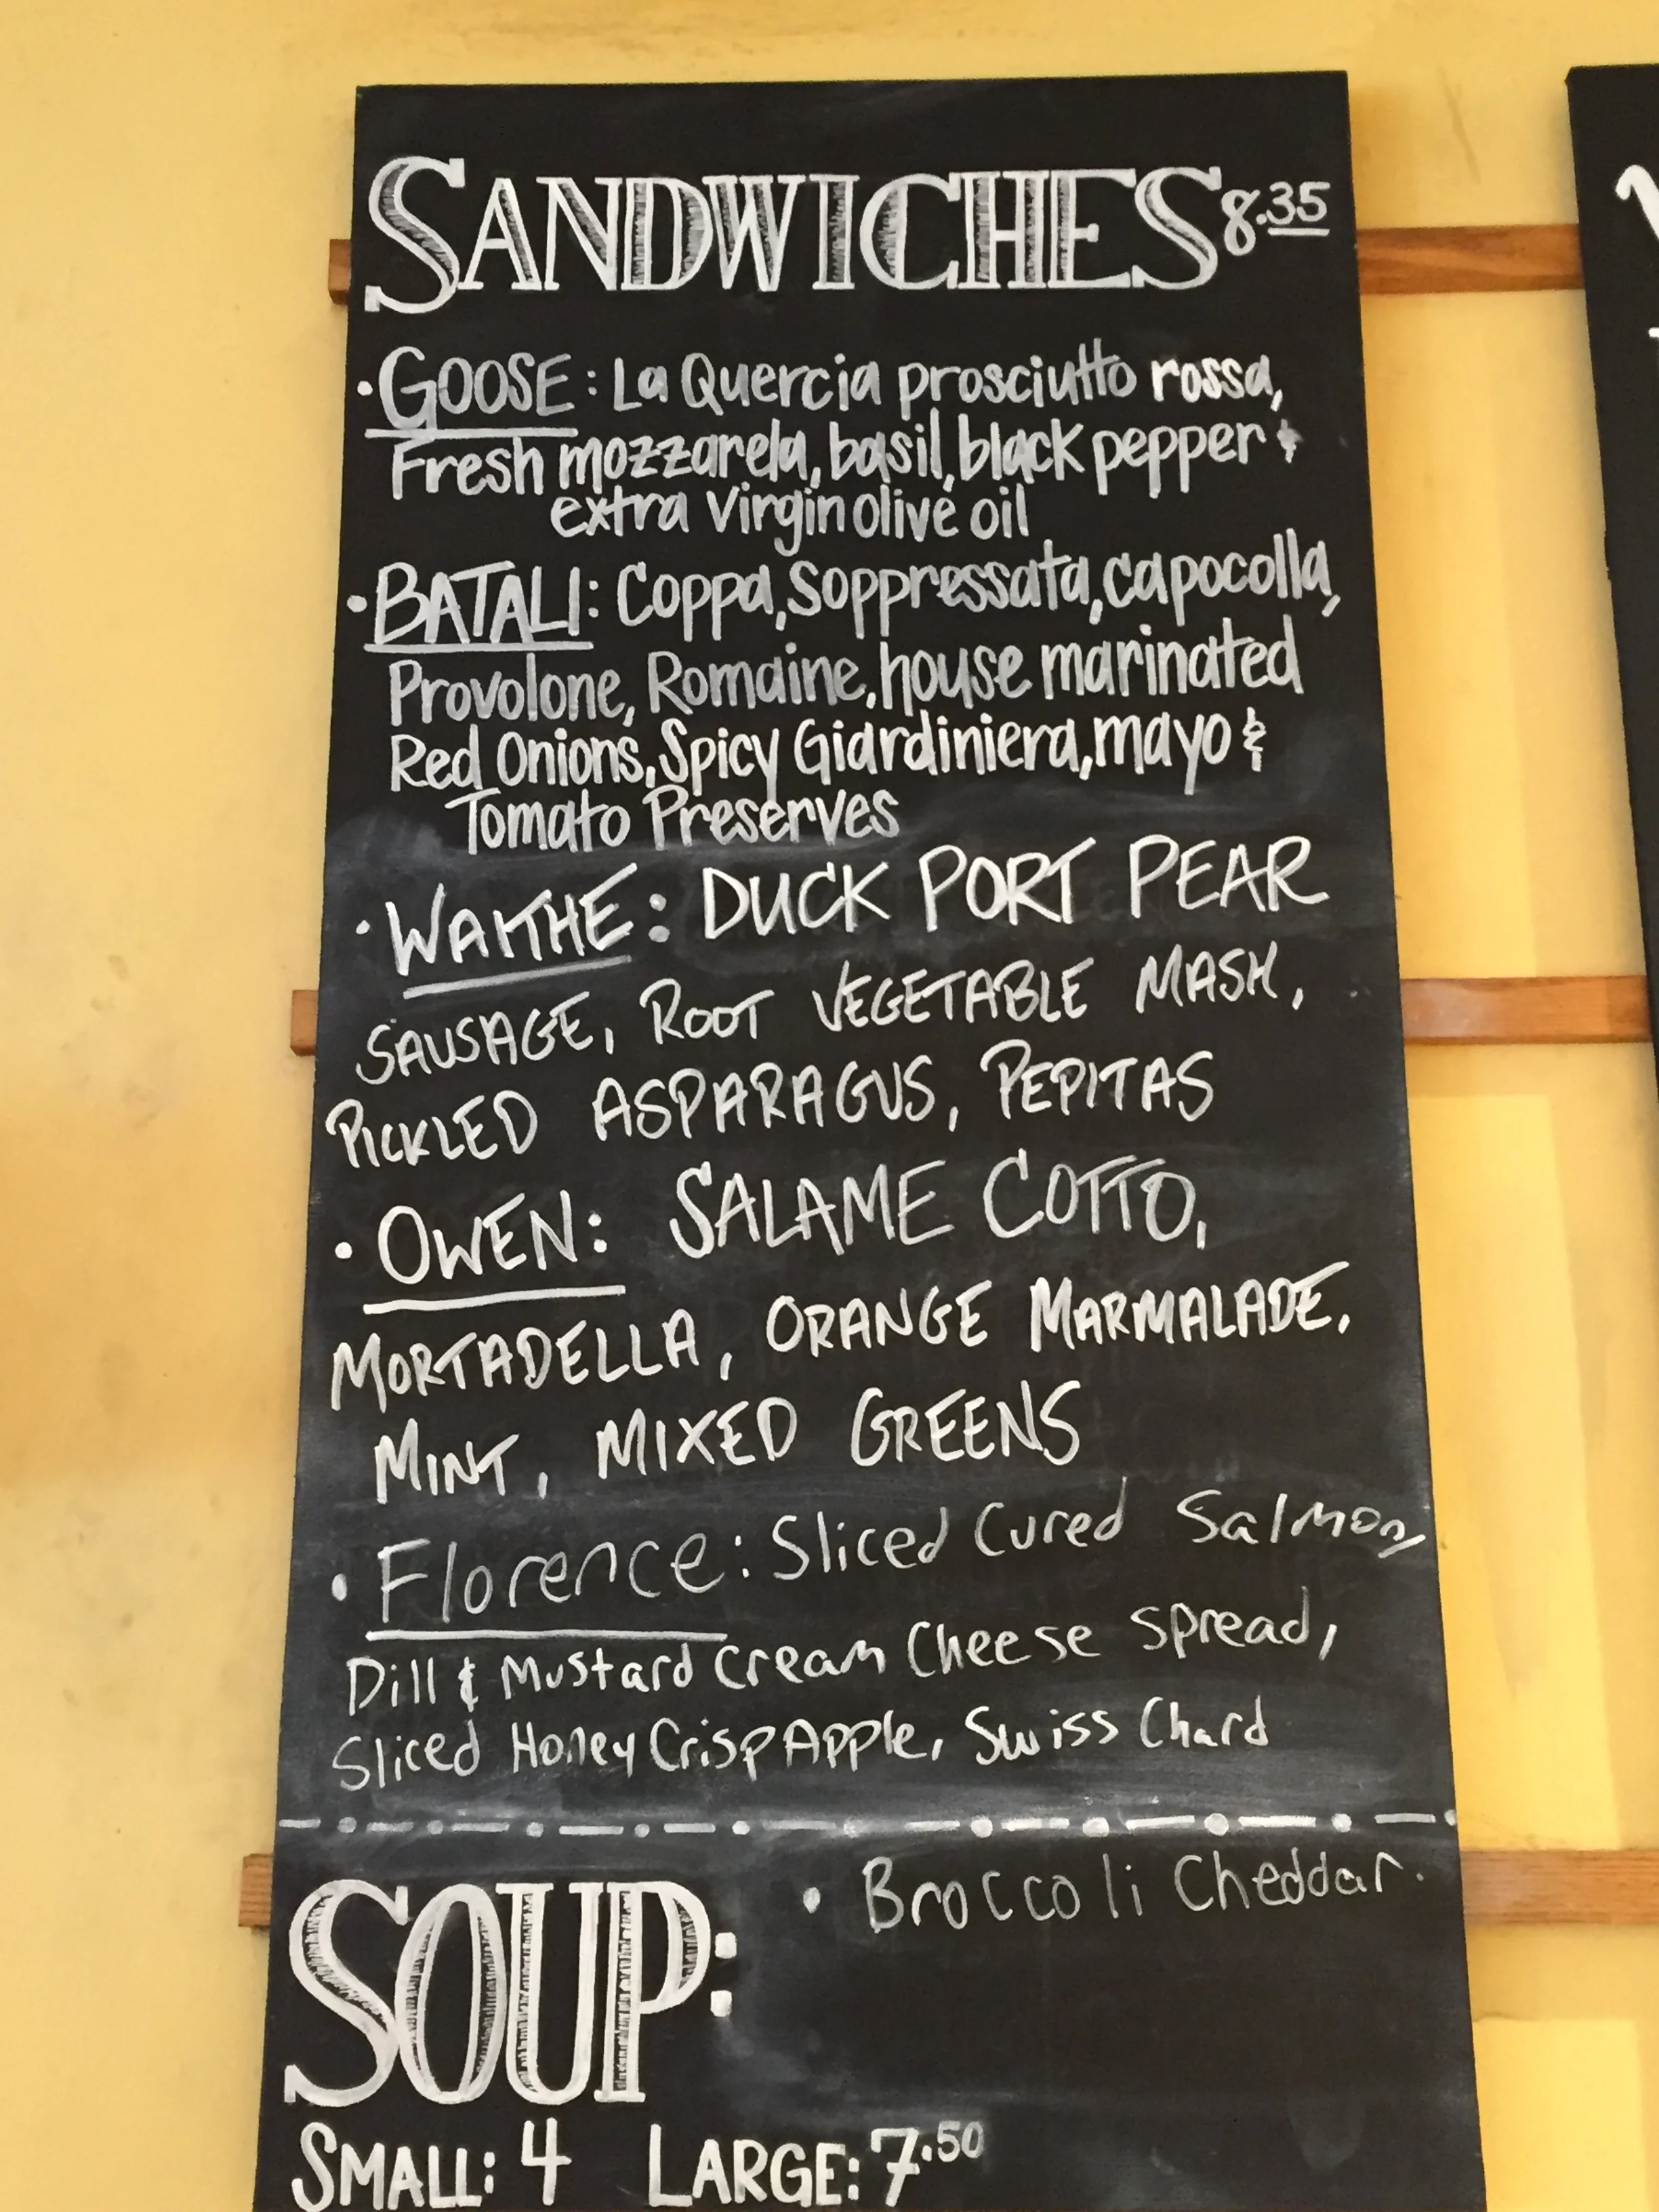 SANDWICHES 8.35
• GOOSE: La Quercia prosciutto rossa,
Fresh mozzarela, basil, black pepper &
extra virgin olive oil
• BATALI: Coppa, Soppressata, capocolla,
Provolone, Romaine, house marinated
Red Onions, Spicy Giardiniera, mayo &
Tomato Preserves
• WAITHE: DUCK PORT PEAR
SAUSAGE, ROOT VEGETABLE MASH,
PICKLED ASPARAGUS, PEPITAS
• OWEN: SALAME COTTO,
MORTADELLA, ORANGE MARMALADE,
MINT, MIXED GREENS
• Florence: Sliced Cured Salmon,
Dill & Mustard Cream Cheese Spread,
Sliced Honey Crisp Apple, Swiss Chard
SOUP: • Broccoli Cheddar.
SMALL: 4 LARGE: 7.50